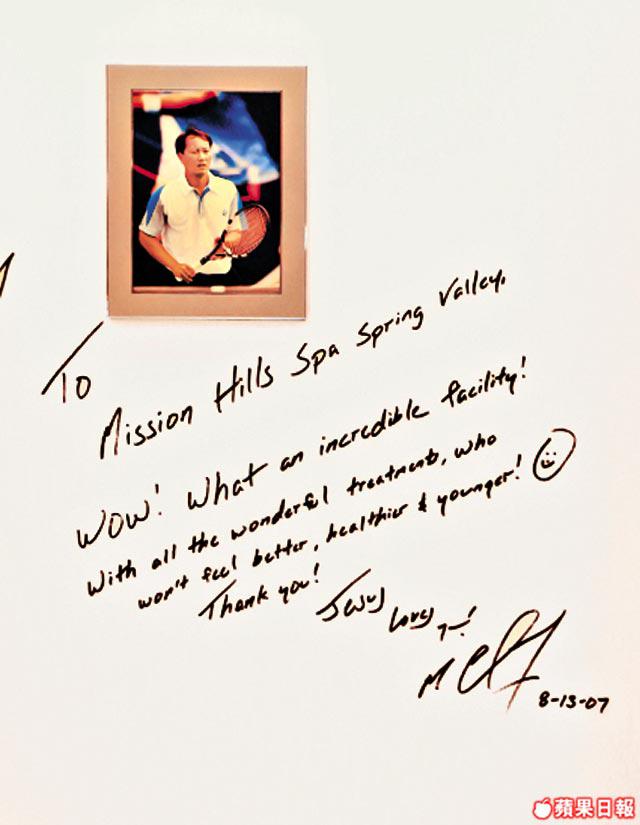 To
Mission Hills Spa Spring Valley,
Wow! What an incredible facility!
With all the wonderful treatments, who
won't feel better, healthier & younger!
Thank you!
Jesus loves
8-13-07
蘋果日報